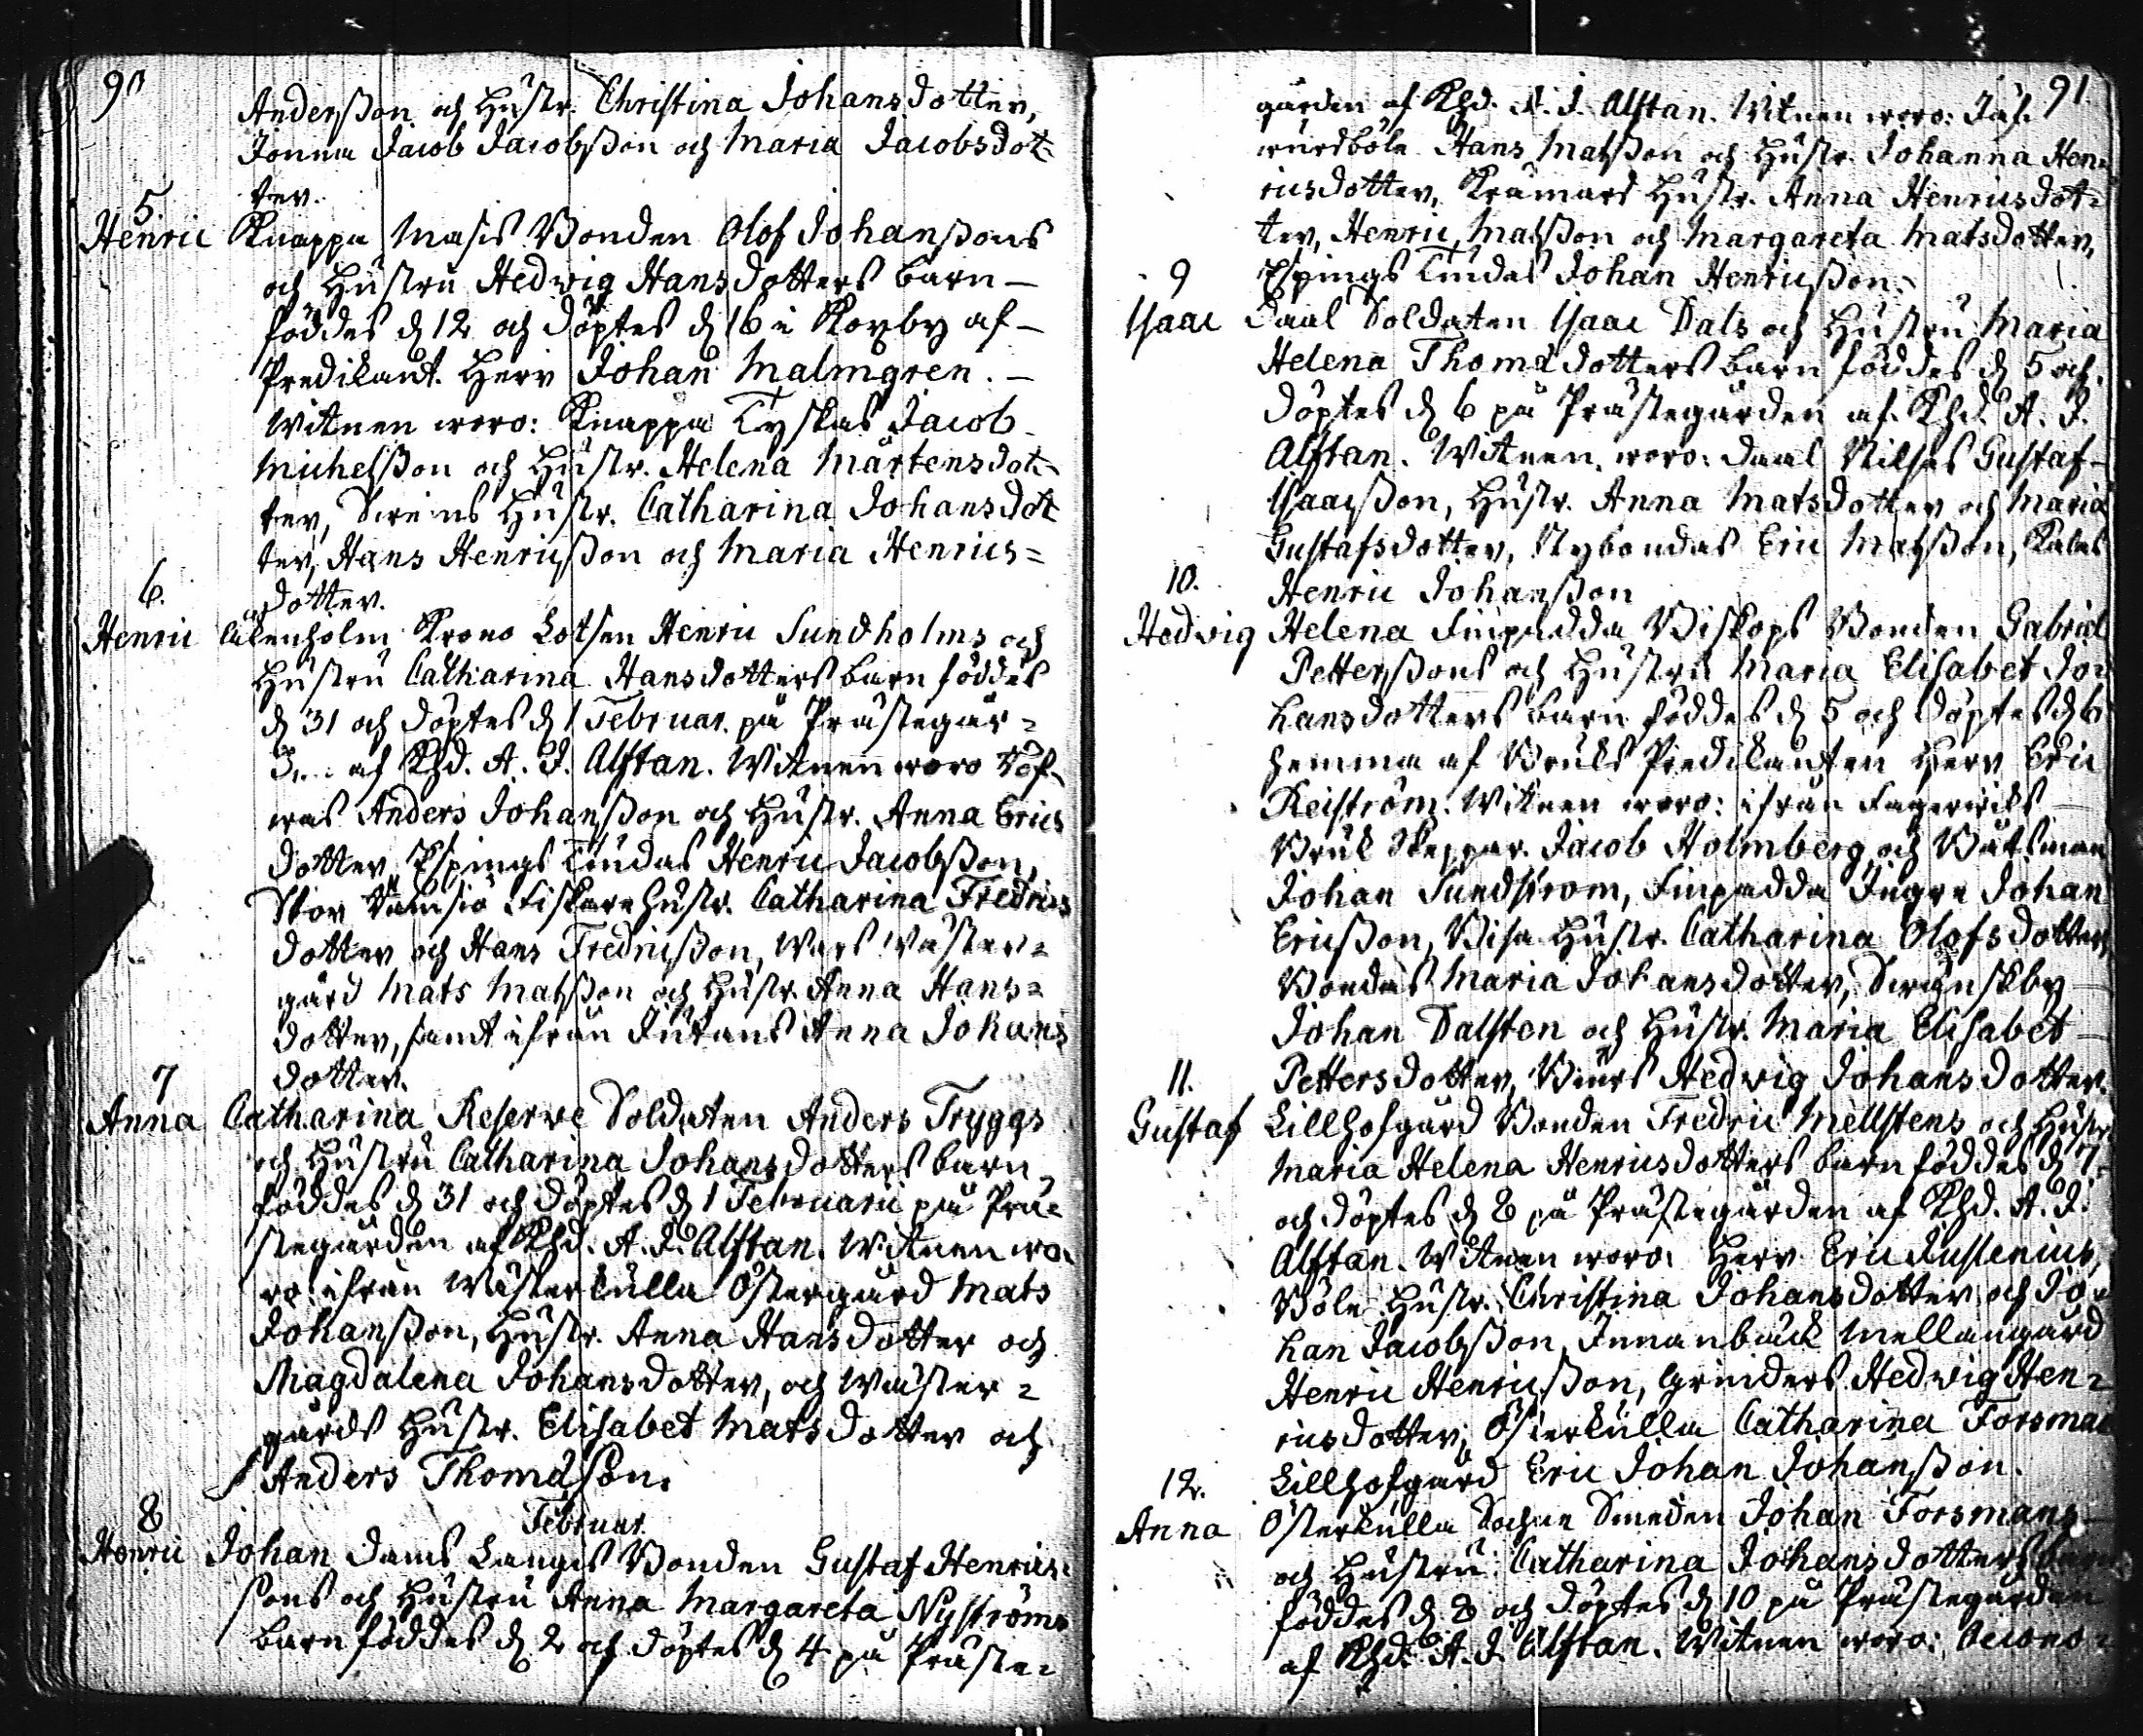 90
Anderßon och Hustr. Christina Johansdotter,
Jonna Jacob Jacobßon och Maria Jacobsdot=
ter.
5.
Henric Knappa Masis Bonden Olof Johanßons
och Hustru Hedvig Hansdotters barn –
föddes d 12 och döptes d 16 i Skogby af –
Predikant. Herr Johan Malmgren. –
Witnen woro: Knappa Tyskas Jacob
Michelßon och Hustr. Helena Mårtensdot=
ter, Svens Hustr. Catharina Johansdot
ter, Hans Henricßon och Maria Henrics=
dotter.
6.
Henric Krono Lotsen Henric Sundholms och
Hustru Catharina Hansdotters barn föddes
d 31 och döptes d 1 Februar. på Prästegår=
af Khd. A. J. Alftan. Witnen woro Töf=
was Anders Johanßon och Hustr. Anna Erics
dotter Espings Lindas Henric Jacobßon,
Stor Ramsiö Fiskare Hustr. Catharina Fredrics
dotter och Hans Fredricßon, Wårs Wäster=
gård Mats Matsßon och Hustr. Anna Hans=
dotter, samt ifrån Anna Johans
dotter.
7
Anna Catharina Reserve Soldaten Anders Tryggs
och Hustru Catharina Johansdotters barn
föddes d 31 och döptes d 1 Februarii på Prä=
stegården af Khd. A. J. Alftan. Witnen wo=
ro ifrån Wästerkulla Östergård Mats
Johanßon, Hustr. Anna Hansdotter och
Magdalena Johansdotter, och Wäster=
gårds Hustr. Elisabet Matsdotter och
Anders Thomasson.
Februar.
8
Henric Johan Dams Langis Bonden Gustaf Henrics=
sons och Hustru Anna Margareta Nyströms
barn föddes d 2 och döptes d 4 på Präste=
91.
gården af Khd. A. J. Alftan. Witnen woro:
böle Hans Matsßon och Hustr. Johanna Hen=
ricsdotter, Krämars Hustr. Anna Henricsdot=
ter, Henric Matsßon och Margareta Matsdotter,
Espings Lindas Johan Henricßon.
9
Isaac Daal Soldaten Isaac Dals och Hustru Maria
Helena Thomasdotters barn föddes d 5 och
döptes d 6 på Prästegården af Khd. A. J.
Alftan. Witnen woro: Daal Nilsas Gustaf
Isaacßon, Hustr. Anna Matsdotter och Maria
Gustafsdotter, Nybondas Eric Matsßon,
Henric Johanßon
10.
Hedvig Helena Finpadda Biskops Bonden Gabriel
Petterßons och Hustru Maria Elisabet Jo=
hansdotters barn föddes d 5 och döptes d 6
hemma af Bruks Predikanten Herr Eric
Reiström. Witnen woro: ifrån Fagerwiks
Bruk Skeppar. Jacob Holmberg och Båtsman
Johan Sundström, Finpadda Ingve Johan
Ericßon, Bisa Hustr. Catharina Olofsdotter,
Bondas Maria Johansdotter, Svänskby
Johan Dalsten och Hustr. Maria Elisabet
Pettersdotter, Hedvig Johansdotter.
11.
Gustaf Lillhofgård Bonden Fredric Mellstens och Hustr
Maria Helena Henricsdotters barn föddes d 7
och döptes d 8 på Prästegården af Khd. A. J.
Alftan. Witnen woro: Herr Eric Justenius,
Böle Hustr. Christina Johansdotter och Jo=
han Jacobßon, Innanbäck Mellangård
Henric Henricßon, Grinders Hedvig Hen=
ricsdotter, Österkulla Catharina Forsman
Lillhofgård Eric Johan Johanßon.
12.
Anna Österkulla Sockne Smeden Johan Forsmans
och Hustru Catharina Johansdotters barn
föddes d. 8 och döptes d 10 på Prästegården
af Khd. A. J. Alftan. Witnen woro: Oecono=